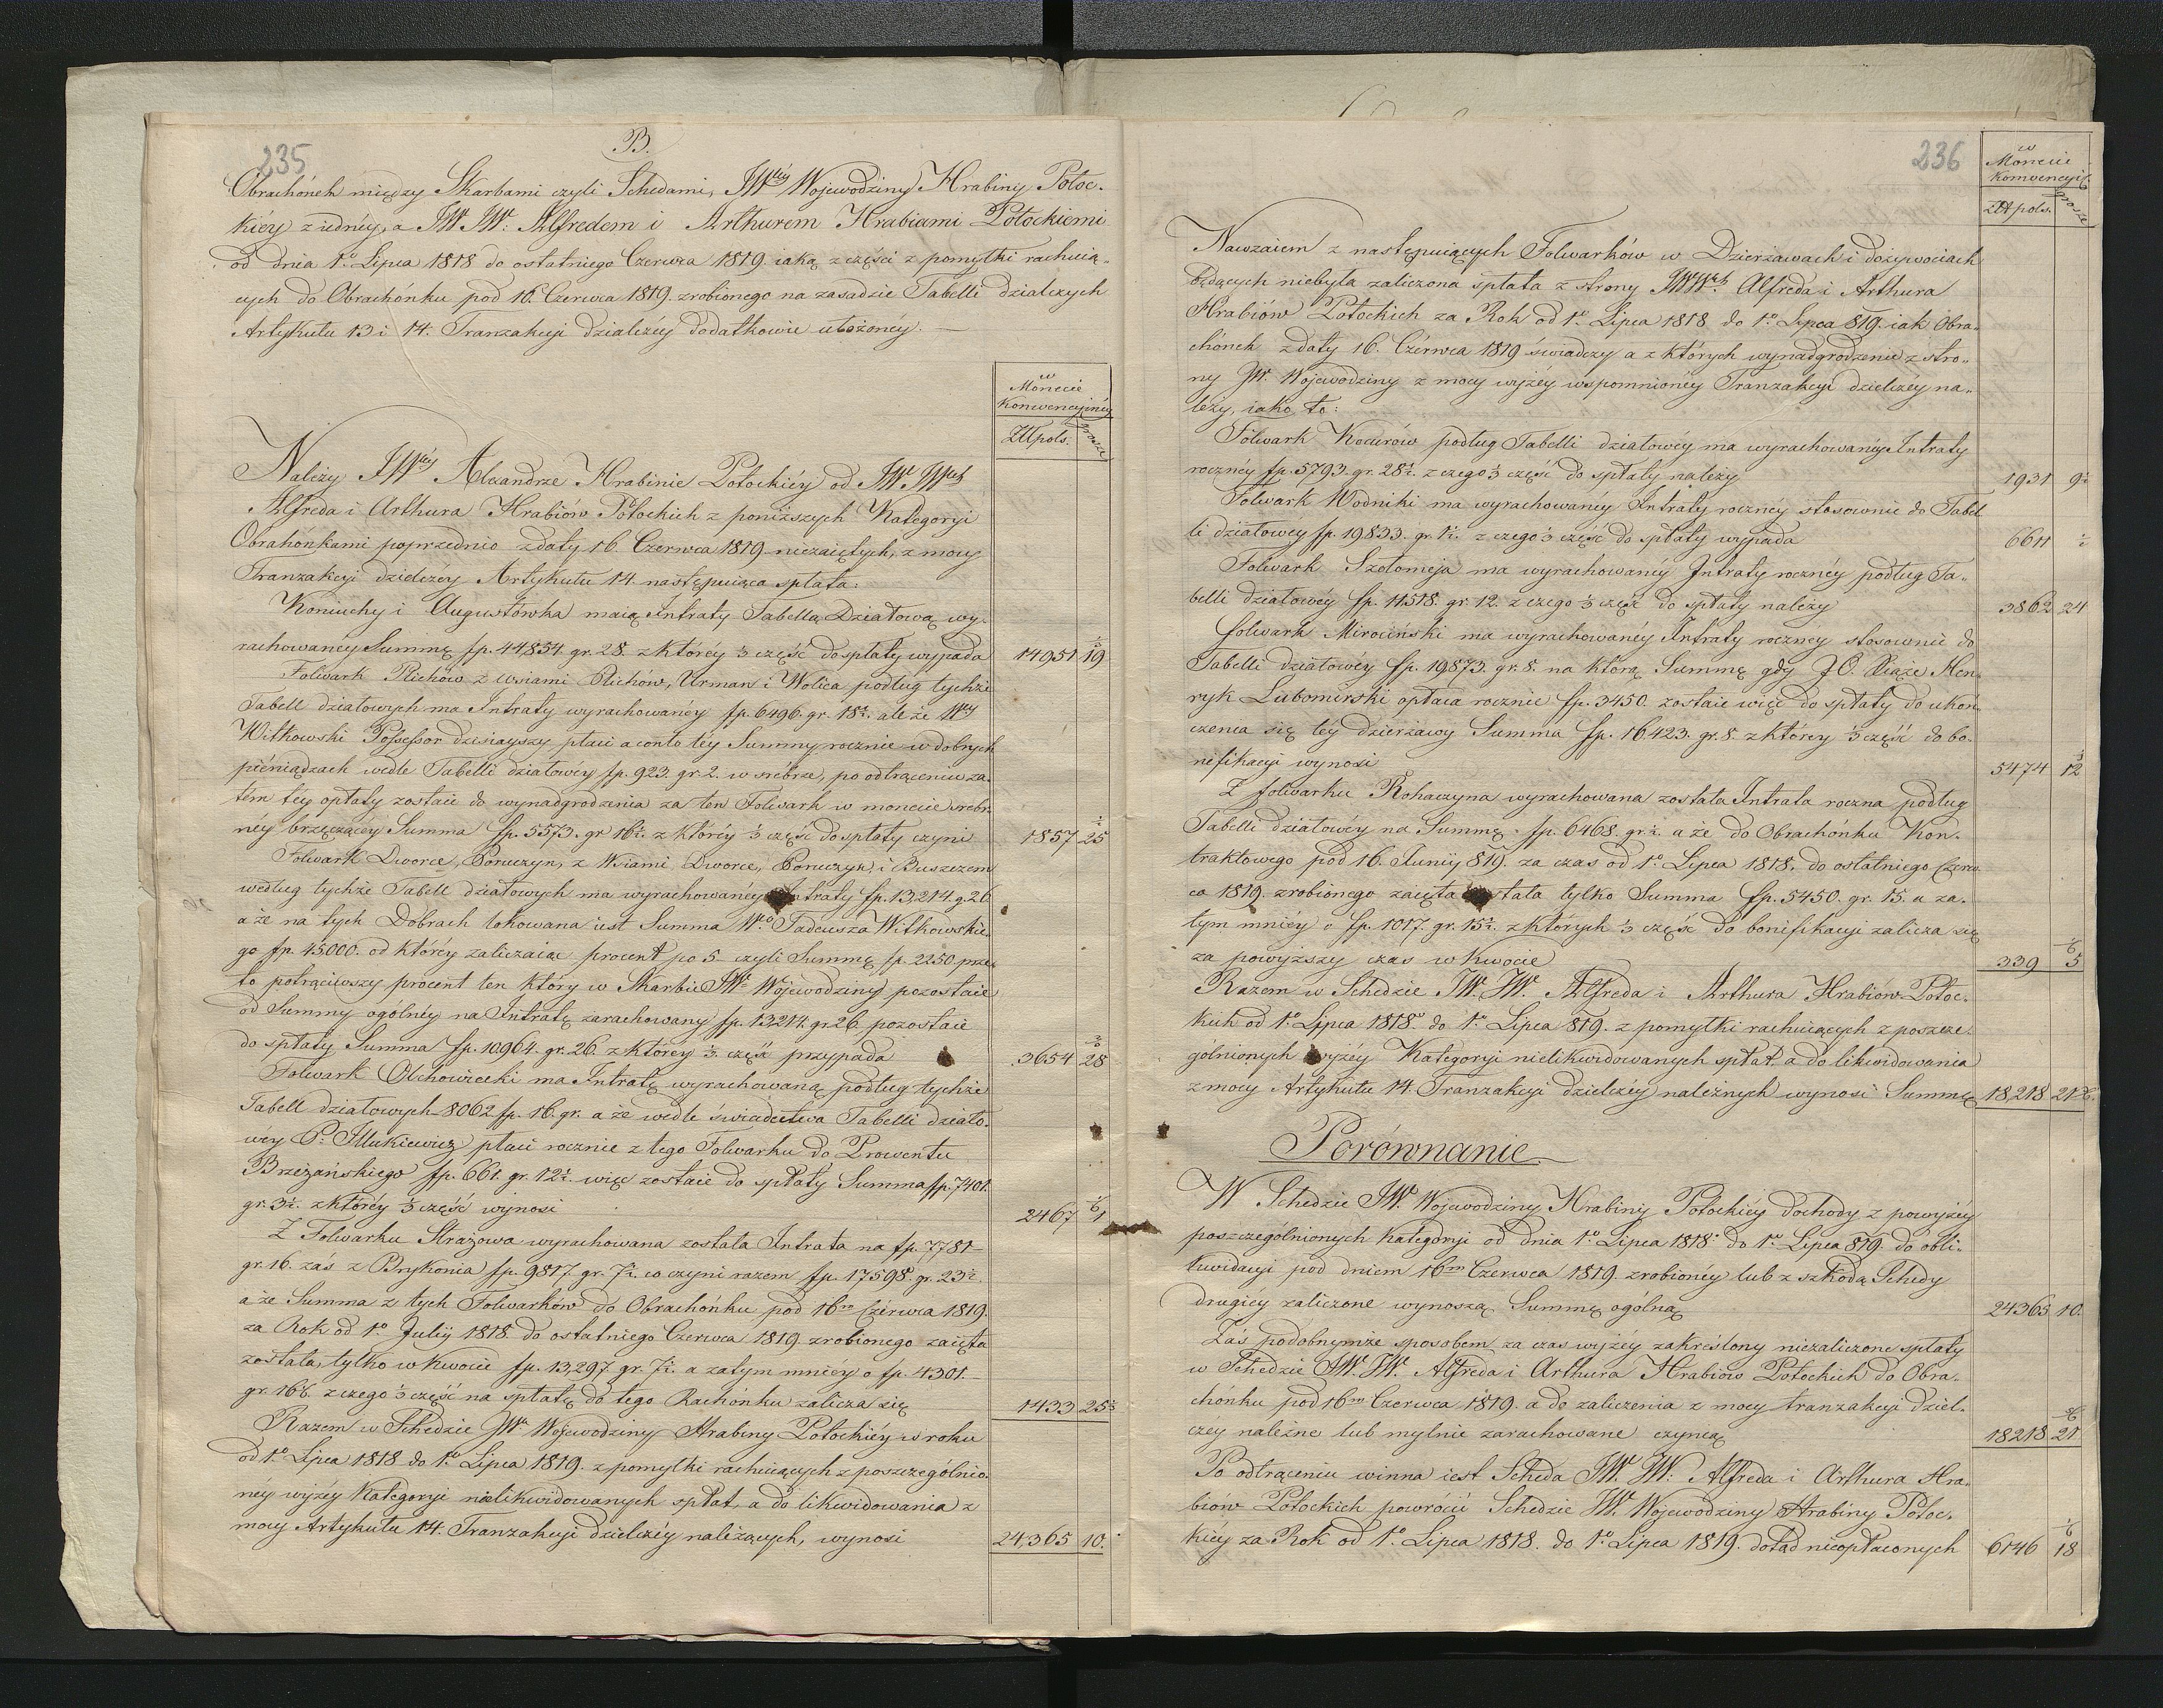 235
B.
Obrachónek między Skarbami czyli Schedami, JWéy Wojewodziny Hrabiny Potoc-
kiéy z iednéy, a JW JW: Alfredem i Arthurem Hrabiami Potockiemi
od dnia 1º Lipca 1818 do ostatniego Czerwca 1819. iaką z części z pomyłki rachuią-
cych do Obrachónku pod 16. Czerwca 1819. zrobionego na zasadzie Tabelli działczych
Artykułu 13 i 14. Tranzakcyi dzialczéy dodatkowie ułożonéy.
w
Monecie
Konwencyjnéy
ZŁpols. grosze
Należy JWéy Alexandrze Hrabinie Potockiéy od JW JWch
Alfreda i Arthura Hrabiów Potockich z poniższych Kategoryi
Obrahónkami poprzednio z daty 16. Czerwca 1819 niezaiętych, z mocy
Tranzakcyi dzielczéy Artykułu 14. następuiąca spłata:
Koniuchy i Augustówka maią Intraty Tabellą Działową wy-
rachowanéy Summę fp. 44,854. gr. 28. z któréy ⅓ część do spłaty wypada 14951 19⅓
Folwark Plichów z wsiami Plichów, Urman i Wolica podług tychże
Tabell działowych ma Intraty wyrachowanéy fp. 6496. gr. 18½. ale że Wny
Witkowski Possessor dzisiayszy płaci a conto téy Summy rocznie w dobrych
pieniądzach wedle Tabelli działowéy fp. 923. gr. 2. w srebrze, po odtrąceniu za-
tém téy opłaty zostaie do wynadgrodzenia za ten Folwark w monecie srebr-
néy brzęczącéy Summa fp. 5573. gr 16½. z któréy ⅓ część do spłaty czyni 1857 25½
Folwark Dworce, Poruczyn, z Wsiami, Dworce, Poruczyn, i Buszczem
według tychże Tabell działowych ma wyrachowanéy Intraty fp. 13,214. g. 26
a że na tych Dobrach lokowana iest Summa Wº Tadeusza Witkowskie-
go fp. 45000. od któréy zaliczaiąc procent po 5. czyli Summę fp. 2250. prze-
to potrąciwszy procent ten który w Skarbie JWé Wojewodziny pozostaie
od Summy ogólnéy na Intratę zarachowany fp. 13,214. gr. 26. pozostaie
do spłaty Summa fp. 10964. gr. 26. z któréy ⅓. część przypada 3654 28⅔
Folwark Olchowiecki ma Intratę wyrachowaną podług tychże
Tabell działowych 8062 fp. 16. gr. a że wedle świadectwa Tabelli działo-
wéy P. Illukiewicz płaci rocznie z tego Folwarku do Prowentu
Brzeżańskiego fp. 661. gr. 12½. więc zostaie do spłaty Summa fp. 7401.
gr. 3½. z któréy ⅓ część wynosi 2467 1⅙
Z Folwarku Strazowa wyrachowana została Intrata na fp. 7781
gr. 16. zaś z Brykonia fp. 9817. gr. 7½. co czyni razem fp. 17598. gr. 23½
a że Summa z tych Folwarków do Obrachónku pod 16m Czérwca 1819.
za Rok od 1º Julij 1818 do ostatniego Czerwca 1819. zrobionego zaiętą
została, tylko w kwocie fp. 13,297. gr. 7½. a zatym mniéy o fp. 4301.
gr. 16. z czego ⅓ część na spłatę do tego Rachónku zalicza się 1433 25⅓
Razem w Schedzie JWé Wojewodziny Hrabiny Potockiéy w roku
od 1º Lipca 1818 do 1º Lipca 1819. z pomyłki rachuiących z poszczególnio-
néy wyżéy Kategoryi nielikwidowanych spłat, a do likwidowania z
mocy Artykułu 14. Tranzakcyi dzielczéy należących, wynosi 24,365 10.
236
w
Monecie
Konwencyjn.
ZŁ pols. grosze
Nawzaiem z następuiących Folwarków w Dzierżawach i dożywociach
będących niebyła zaliczona spłata z strony JWWch Alfreda i Arthura
Hrabiów Potockich za Rok od 1º Lipca 1818 do 1º Lipca 819. iak Obra-
chónek z daty 16. Czérwca 1819 świadczy a z których wynadgrodzenie z stro-
ny JW. Wojewodziny z mocy wyżéy wspomnionéy Tranzakcyi dzielczéy na-
leży, iako to:
Folwark Kocurów podług Tabelli działowéy ma wyrachowanéy Intraty
rocznéy fp. 5793. gr. 28½. z czego ⅓ część do spłaty należy 1931 9½
Folwark Wodniki ma wyrachowanéy Intraty rocznéy stosownie do Tabel-
li działowey fp 19833. gr. 1½. z czego ⅓ część do spłaty wypada 6611 ½
Folwark Szołomeja ma wyrachowanéy Intraty rocznéy podług Ta-
belli działowéy fp. 11518. gr 12. z czego ⅓ część do spłaty należy 3862 24
folwark Mirociński ma wyrachowanéy Intraty rocznéy stosownie do
Tabelli działowéy fp. 19873. gr. 8. na którą Summę gdy J.O. Xiąże Hen-
ryk Lubomirski opłaca rocznie fp. 3450. zostaie więc do spłaty do ukoń-
czenia się téy dzierżawy Summa fp. 16.423. gr. 8. z któréy ⅓ część do bo-
nifikacyi wynosi 5474 12⅔
Z folwarku Rohaczyna wyrachowana została Intrata roczna podług
Tabelli działowéy na Summę fp. 6468. gr. ½. a że do Obrachónku Kon-
traktowego pod 16. Junij 819. za czas od 1º Lipca 1818. do ostatniego Czerw-
ca 1819. zrobionego zaięta została tylko Summa fp. 5450. gr. 15. a za-
tym mniéy o fp. 1017. gr. 15½. z których ⅓ część do bonifikacyi zalicza się
za powyższy czas w kwocie 339 5⅙
Razem w Schedzie JW. JW. Alfreda i Arthura Hrabiów Potoc-
kich od 1º Lipca 1818º do 1º Lipca 819. z pomyłki rachuiących z poszcze-
gólnionych wyżéy Kategoryi nielikwidowanych spłat a do likwidowania
z mocy Artykułu 14. Tranzakcyi dzielczéy należnych wynosi Summę 18,218 21⅚
Porównanie
W Schedzie JW. Wojewodziny Hrabiny Potockiéy dochody z powyżéy
poszczególnionych Kategoryi od dnia 1º Lipca 1818º do 1º Lipca 819. do obli-
kwidacyi pod dniem 16m Czerwca 1819. zrobionéy lub z szkodą Schedy
drugiéy zaliczone wynoszą Summę ogólną 24365 10.
Zaś podobnymże sposobem za czas wyżéy zakréslony niezaliczone spłaty
w Schedzie JW. JW. Alfreda i Arthura Hrabiów Potockich do Obra-
chonku pod 16m Czerwca 1819. a do zaliczenia z mocy tranzakcyi dziel-
czey należne lub mylnie zarachowane czynią 18218 21⅚
Po odtrąceniu winna iest Scheda JW. JW: Alfreda i Arthura Hra-
biów Potockich powrócić Schedzie JW. Wojewodziny Hrabiny Potoc-
kiéy za Rok od 1º Lipca 1818. do 1º Lipca 1819. dotąd nieopłaconych 6146 18⅙